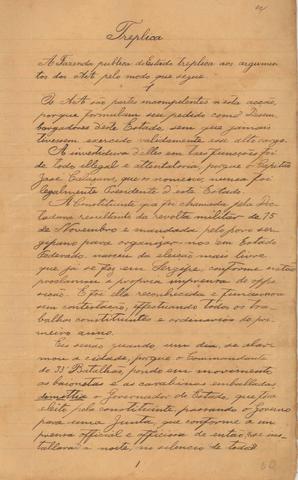 Treplica
A Fazenda publica do Estado treplica aos argumen-
tos dos AA pelo modo que segue
1
Os AA são partes incompetentes n'esta acção,
porque formulam seu pedido como Desem-
bargadores d'este Estado, sem que jamais
tivessem exercido validamente esse alto cargo.
A investidura d'elles em taes funcções foi
de todo illegal e attentatoria, porque o Capitão
José Calasans, que os nomeou, nunca foi
legalmente Presidente d'este Estado.
A Constituinte que foi chamada pela Dic-
tadura resultante da revolta militar de 15
de Novembro e mandada pelo povo ser-
gipano para organizar-nos em Estado
Federado, nasceu da eleição mais livre
que já se fez em Sergipe, conforme então
proclamou a propria imprensa de oppo-
sição. E foi ella reconhecida e funccionou
sem contestação, effectuando todos os tra-
balhos constituintes e ordinarios do pri-
meiro anno.
Eis senão quando um dia, se alar-
mou a cidade, porque o Commandante
do 33 Batalhão, pondo em movimento
as baionetas e as carabinas embaladas,
demittio o Governador do Estado, que fôra
eleito pela constituinte, passando o Governo
para uma Junta, que conforme a im-
prensa official e officiosa de então, se ins-
tallava a noite, no silencio de todos
1